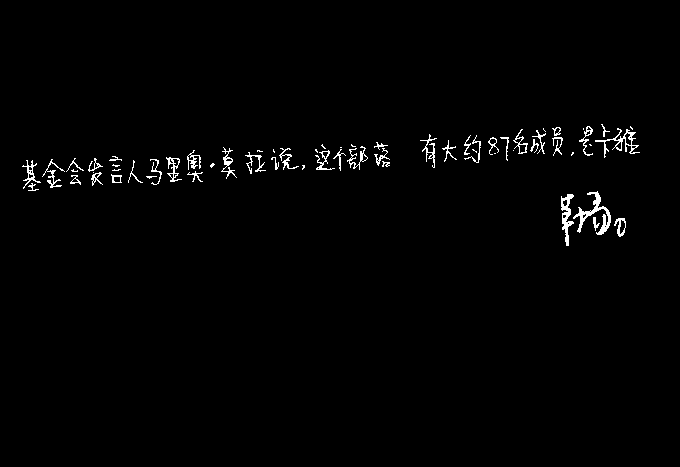 基金会发言人马里奥·莫拉说,这个部落 有大约87名成员,是卡雅